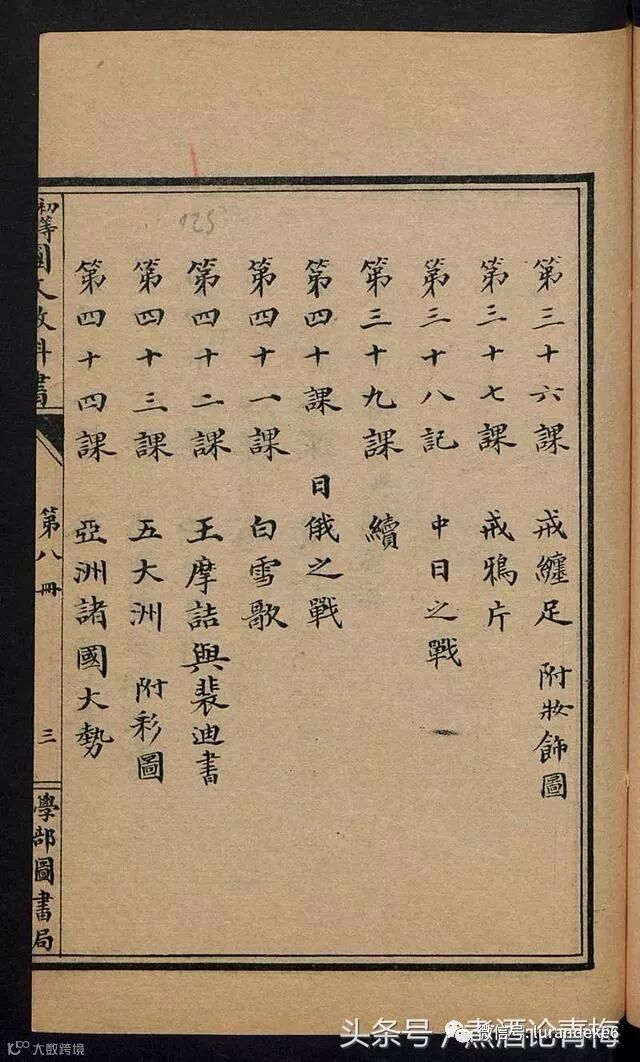 第三十六課 戒纏足 附妝飾圖
第三十七課 戒鴉片
第三十八記 中日之戰
第三十九課 續
第四十課 日俄之戰
第四十一課 白雪歌
第四十二課 王摩詰與裴迪書
第四十三課 五大洲 附彩圖
第四十四課 亞洲諸國大勢
初等國文教科書 第八冊 三 學部圖書局
125
头条号
煮酒论青梅
微信号: lurandeke6
大数跨境